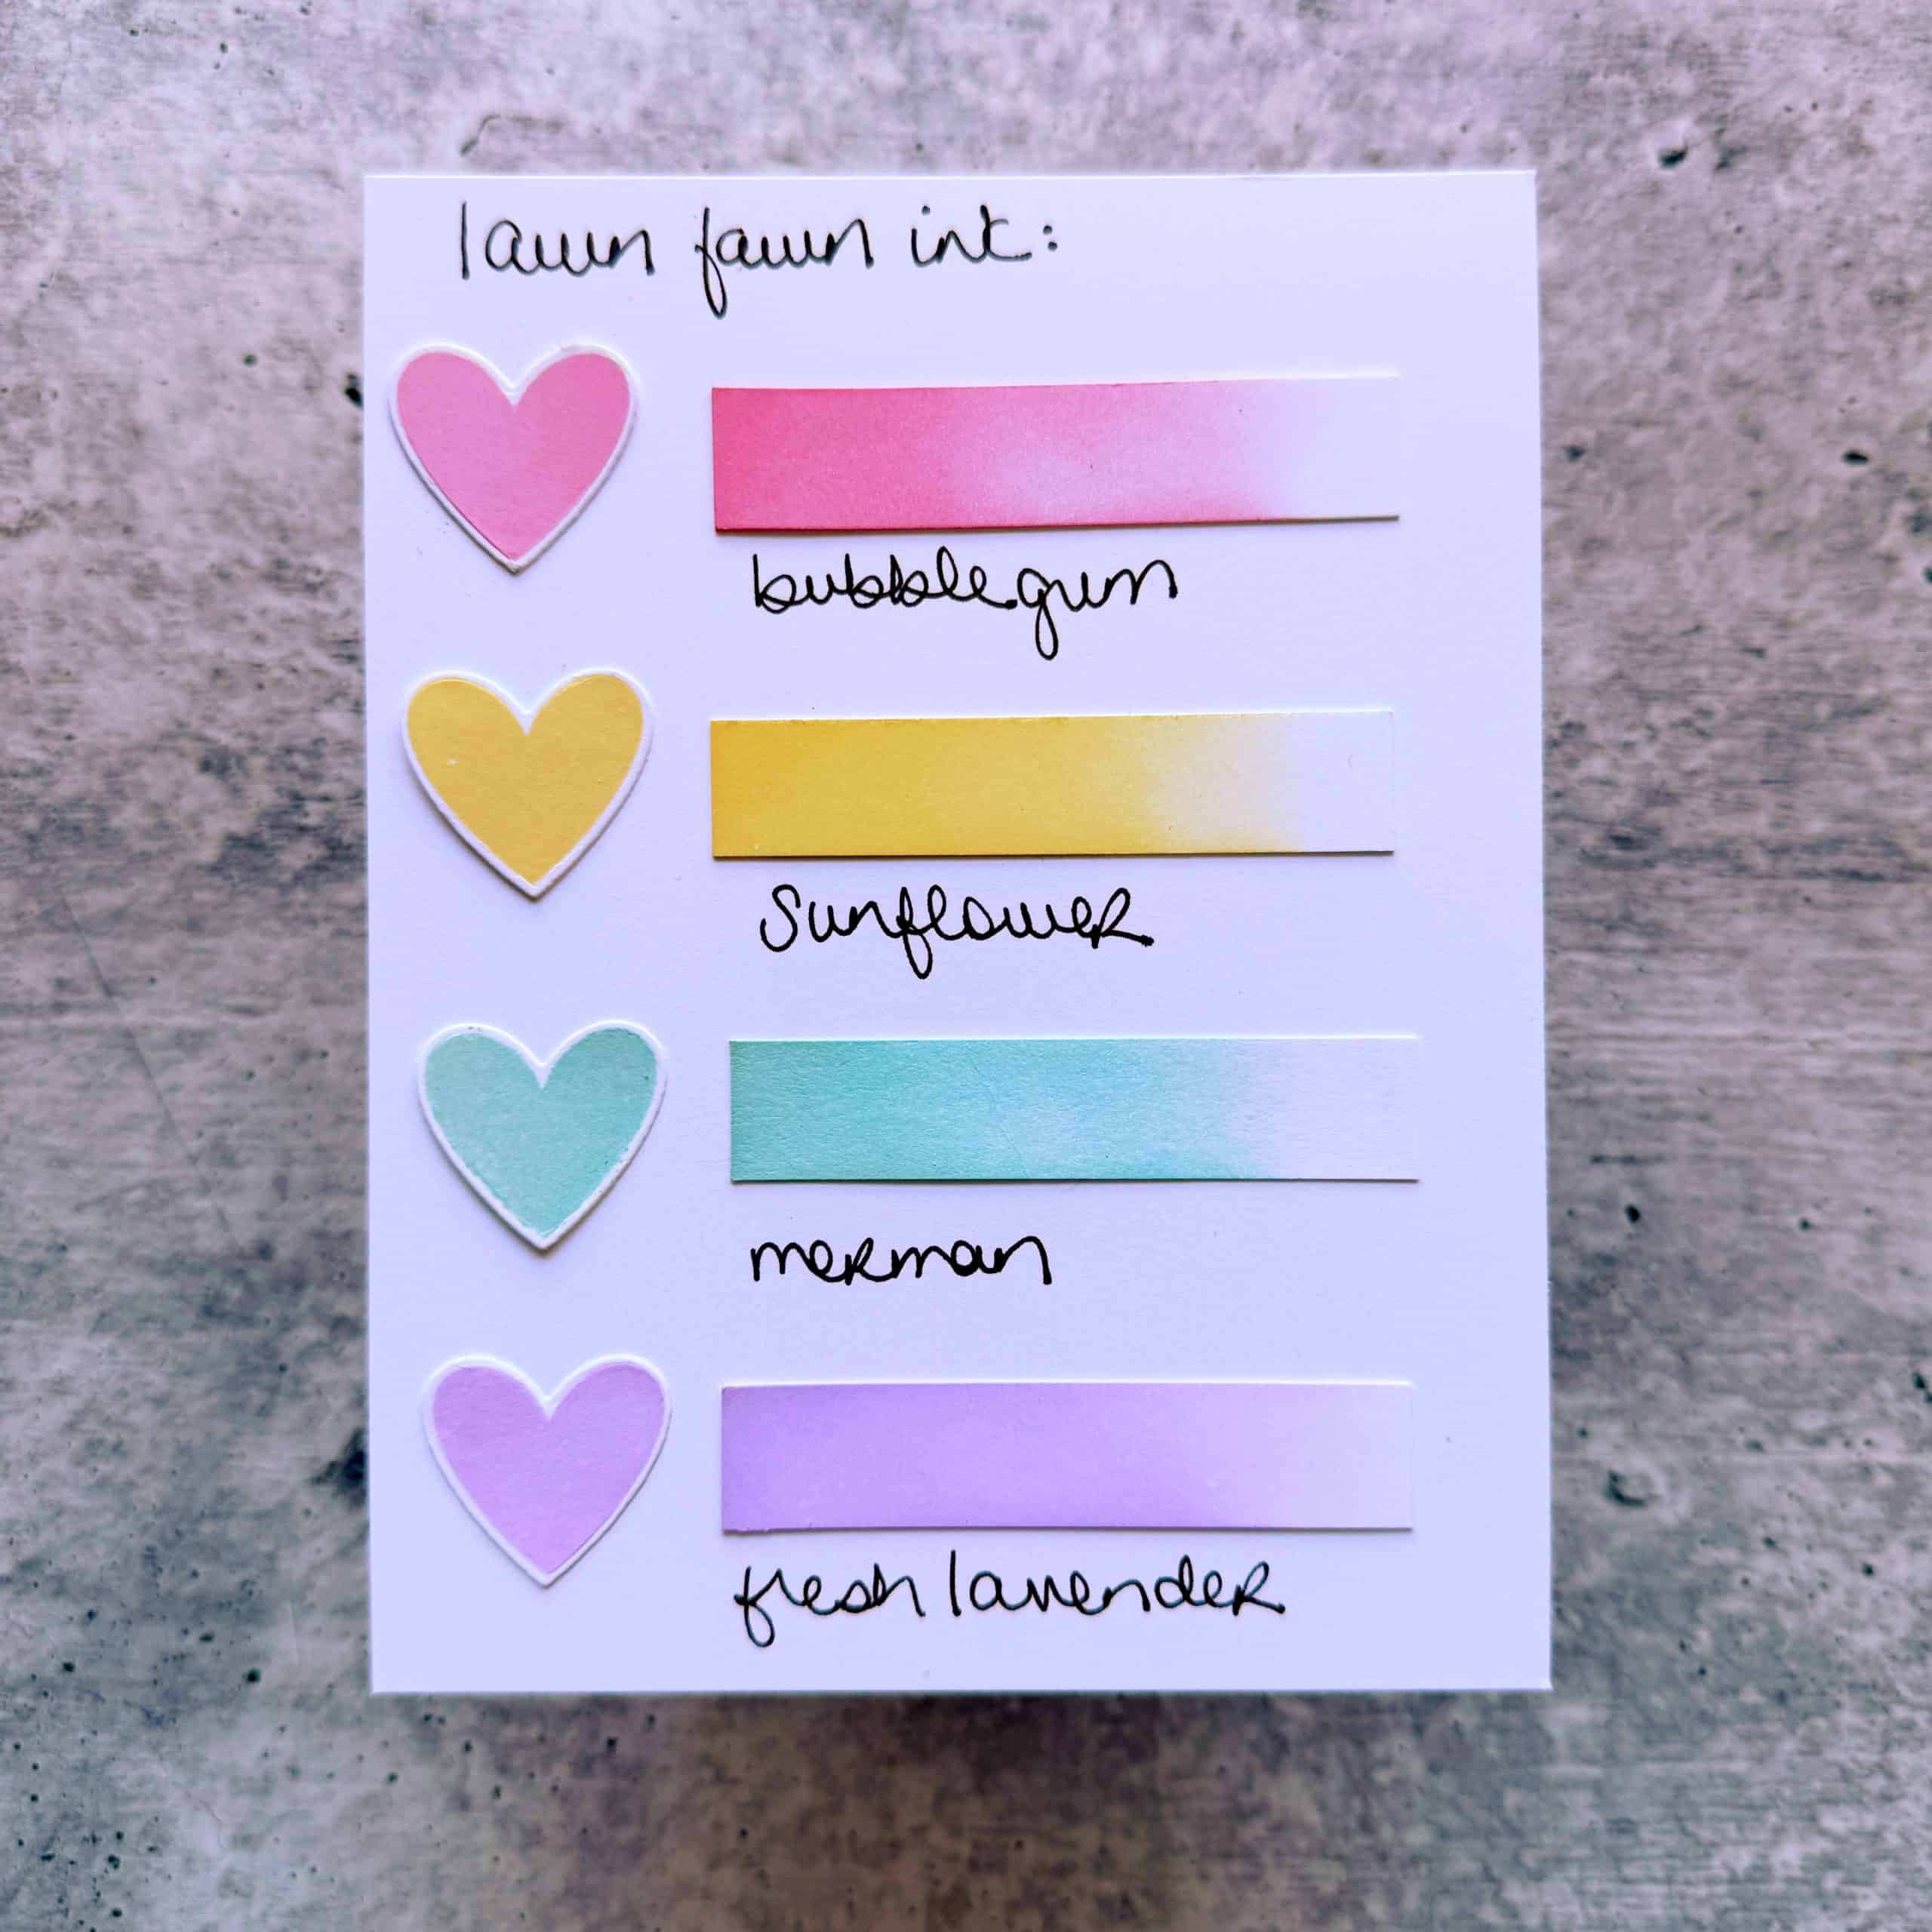 lawn fawn ink:
bubblegum
sunflower
merman
fresh lavender